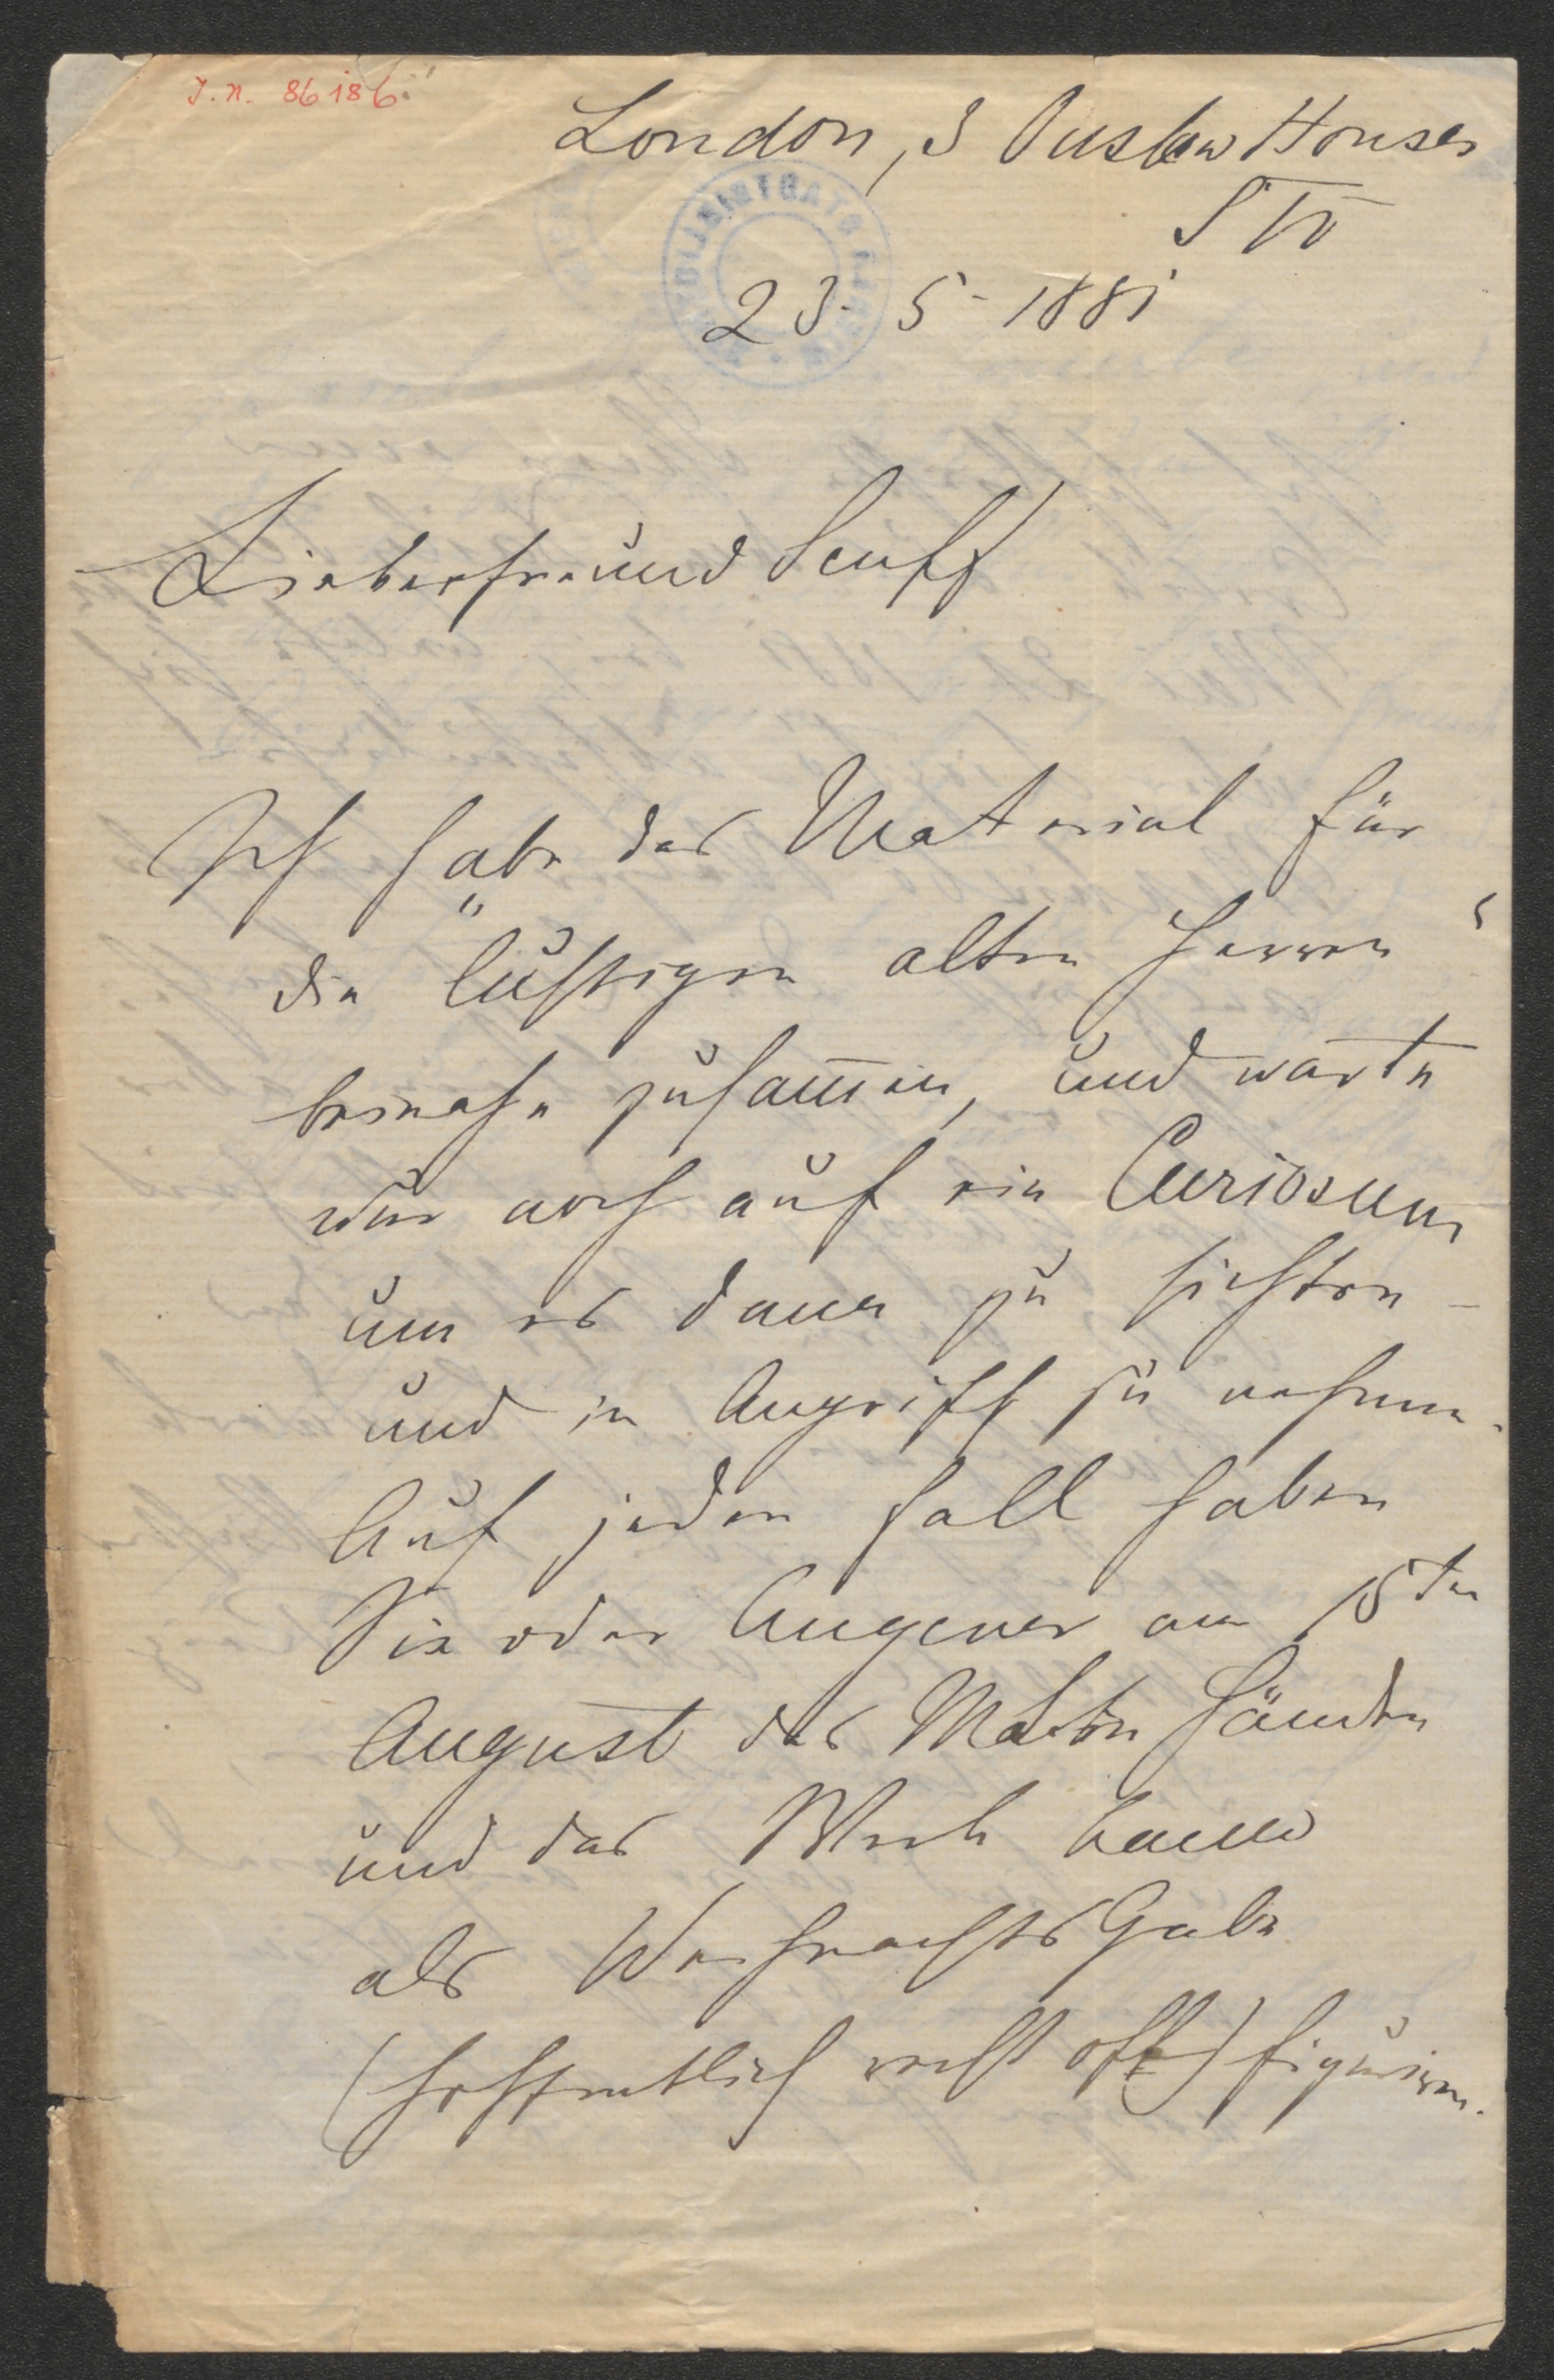 J.N. 86186
London, 3 Onslow Houses
SW
23. 5 - 1881
Lieber Freund Senff
Ich habe das Material für
"die lustigen alten Herren"
beinahe zusammen, und warte
nur noch auf ein Curiosum
um es dann zu sichten -
und in Angriff zu nehmen.
Auf jeden Fall haben
Sie oder Augener am 15ten
August das in Händen
und das Werk kann
als Weihnachts Gabe
(hoffentlich recht oft) figuriren.